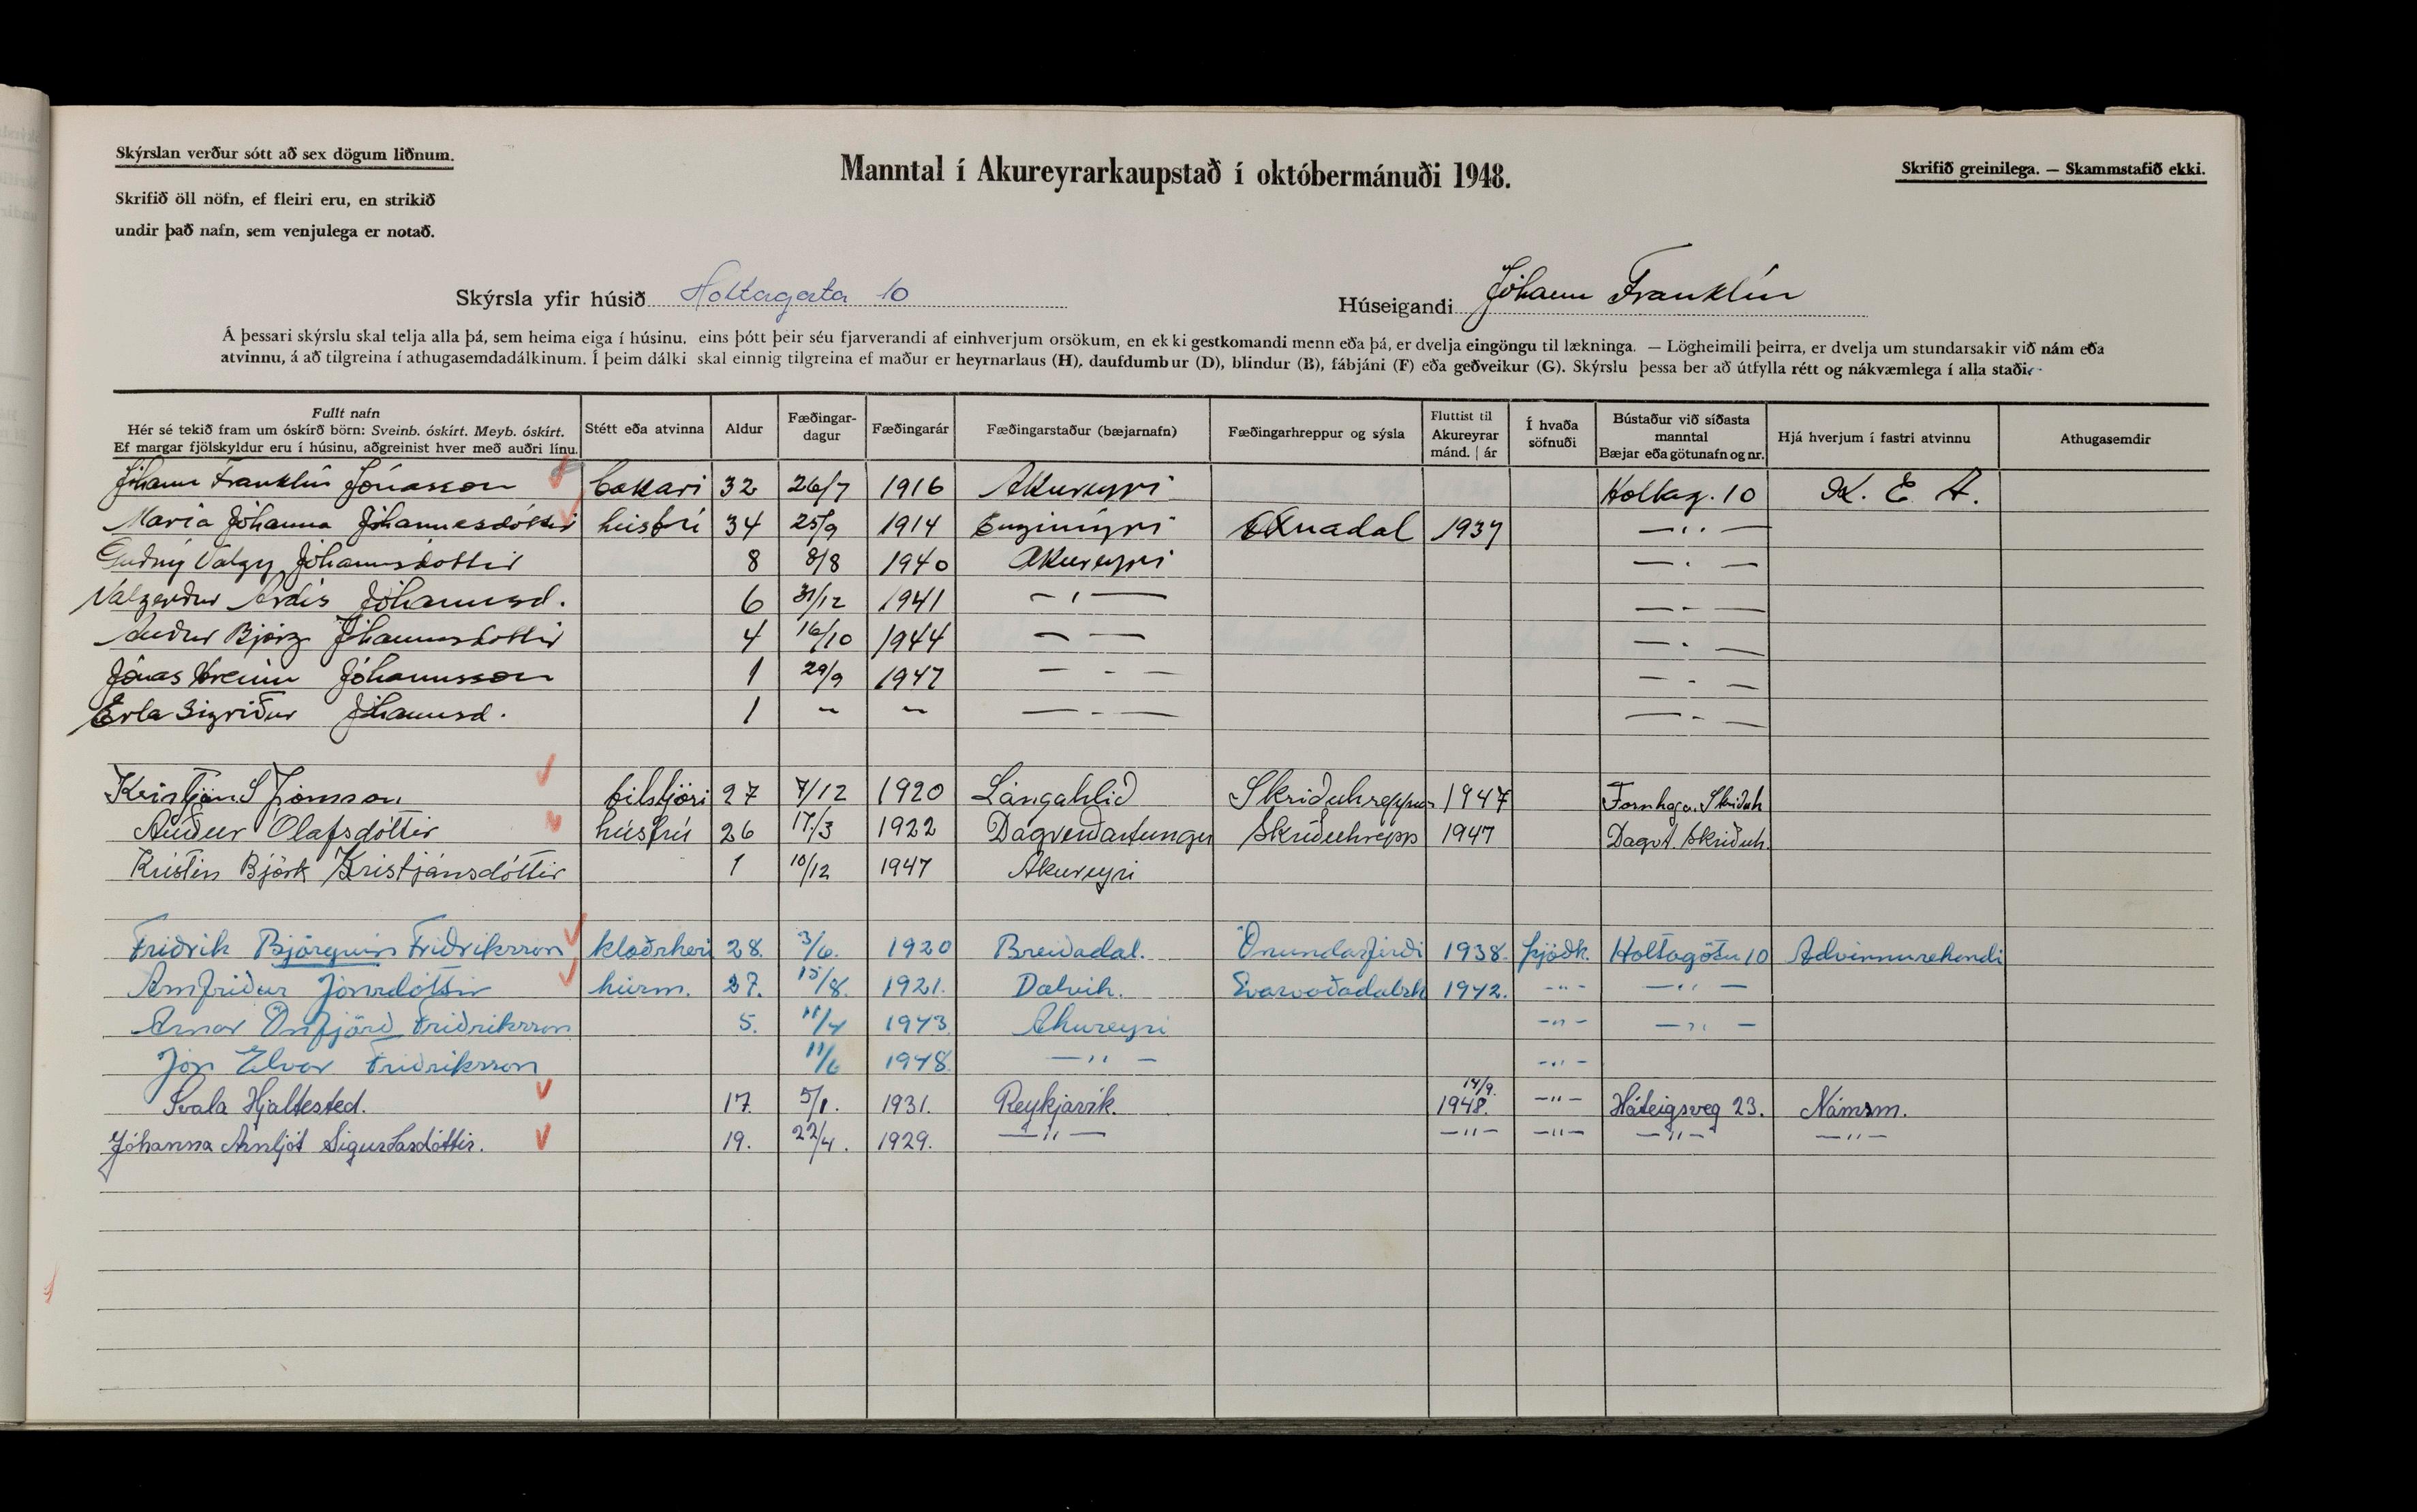 Skýrslan verður sótt að sex dögum liðnum.
Skrifið öll nöfn, ef fleiri eru, en strikið
undir það nafn, sem venjulega er notað.
Manntal í Akureyrarkaupstað í októbermánuði 1948.
Skrifið greinilega. — Skammstafið ekki.
Skýrsla yfir húsið Holtagata 10
Húseigandi Jóhann Franklín
Á þessari skýrslu skal telja alla þá, sem heima eiga í húsinu, eins þótt þeir séu fjarverandi af einhverjum orsökum, en ekki gestkomandi menn eða þá, er dvelja eingöngu til lækninga. — Lögheimili þeirra, er dvelja um stundarsakir við nám eða
atvinnu, á að tilgreina í athugasemdadálkinum. Í þeim dálki skal einnig tilgreina ef maður er heyrnarlaus (H), daufdumbur (D), blindur (B), fábjáni (F) eða geðveikur (G). Skýrslu þessa ber að útfylla rétt og nákvæmlega í alla staði.
Fullt nafn
Hér sé tekið fram um óskírð börn: Sveinb. óskírt. Meyb. óskírt.
Ef margar fjölskyldur eru í húsinu, aðgreinist hver með auðri línu.
Stétt eða atvinna
Aldur
Fæðingar-
dagur
Fæðingarár
Fæðingarstaður (bæjarnafn)
Fæðingarhreppur og sýsla
Fluttist til
Akureyrar
mánd. | ár
Í hvaða
söfnuði
Bústaður við síðasta
manntal
Bæjar eða götunafn og nr.
Hjá hverjum í fastri atvinnu
Athugasemdir
Jóhann Franklín Jónasson bakari 32 26/7 1916 Akureyri Holtag. 10 K. E. A.
María Jóhanna Jóhannesdóttir húsfrú 34 25/9 1914 Engimýri Öxnadal 1937 — ,, —
Guðný Valgý Jóhannsdóttir 8 8/8 1940 Akureyri — . —
Valgerður Ardís Jóhannsd. 6 31/12 1941 — , — — - —
Auður Björg Jóhannsdóttir 4 16/10 1944 — — — . —
Jónas Hreinn Jóhannsson 1 29/9 1947 — - — — - —
Erla Sigríður Jóhannsd. 1 ~ ~ — - — — - —
Kristján S Jónsson bílstjóri 27 7/12 1920 Langahlíð Skriðuhreppur 1947 Fornhaga. Skriðuh
Auður Ólafsdóttir húsfrú 26 17/3 1922 Dagverðartungu Skriðuhrepp 1947 Dagvt. Skriðuh.
Kristín Björk Kristjánsdóttir 1 10/12 1947 Akureyri
Friðrik Björgvin Friðriksson klæðskeri 28. 3/6. 1920 Breiðadal. Önundarfirði 1938. þjóðk. Holtagötu 10 Advinnurekandi
Arnfríður Jónsdóttir húsm. 27. 15/8. 1921. Dalvík. Svarvaðadalsh 1942. -„- — ,, —
Arnar Önfjörð Friðriksson 5. 11/4 1943. Akureyri -„- — ,, —
Jón Elvar Friðriksson 11/6 1948. — ,, — -„-
Svala Hjaltested. 17. 5/1. 1931. Reykjavík. 14/9. 1948. —„— Háteigsveg 23. Námsm.
Jóhanna Arnljót Sigurðardóttir. 19. 22/4. 1929. —„— —„— —„— —„— —„—